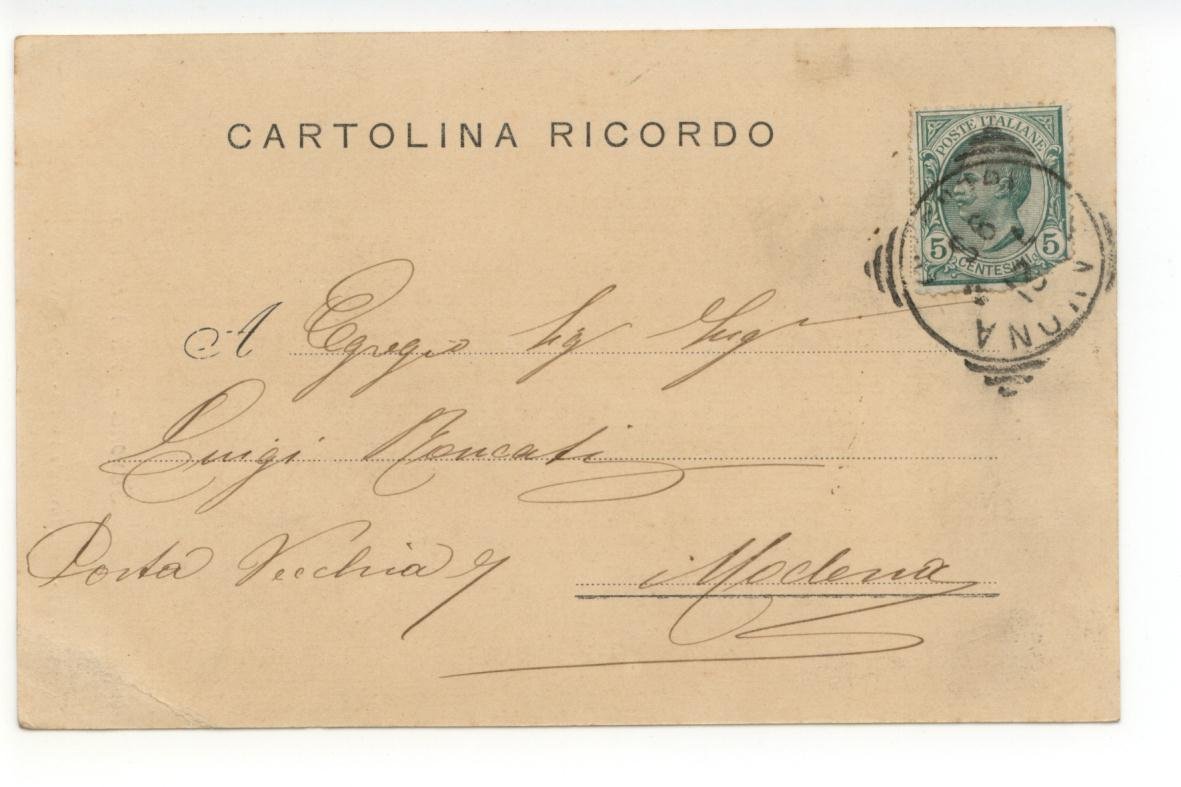 CARTOLINA RICORDO
POSTE ITALIANE
5 CENTESIMI 5
A Egregio Sig
Luigi Roncati
Posta Vecchia 7 Modena